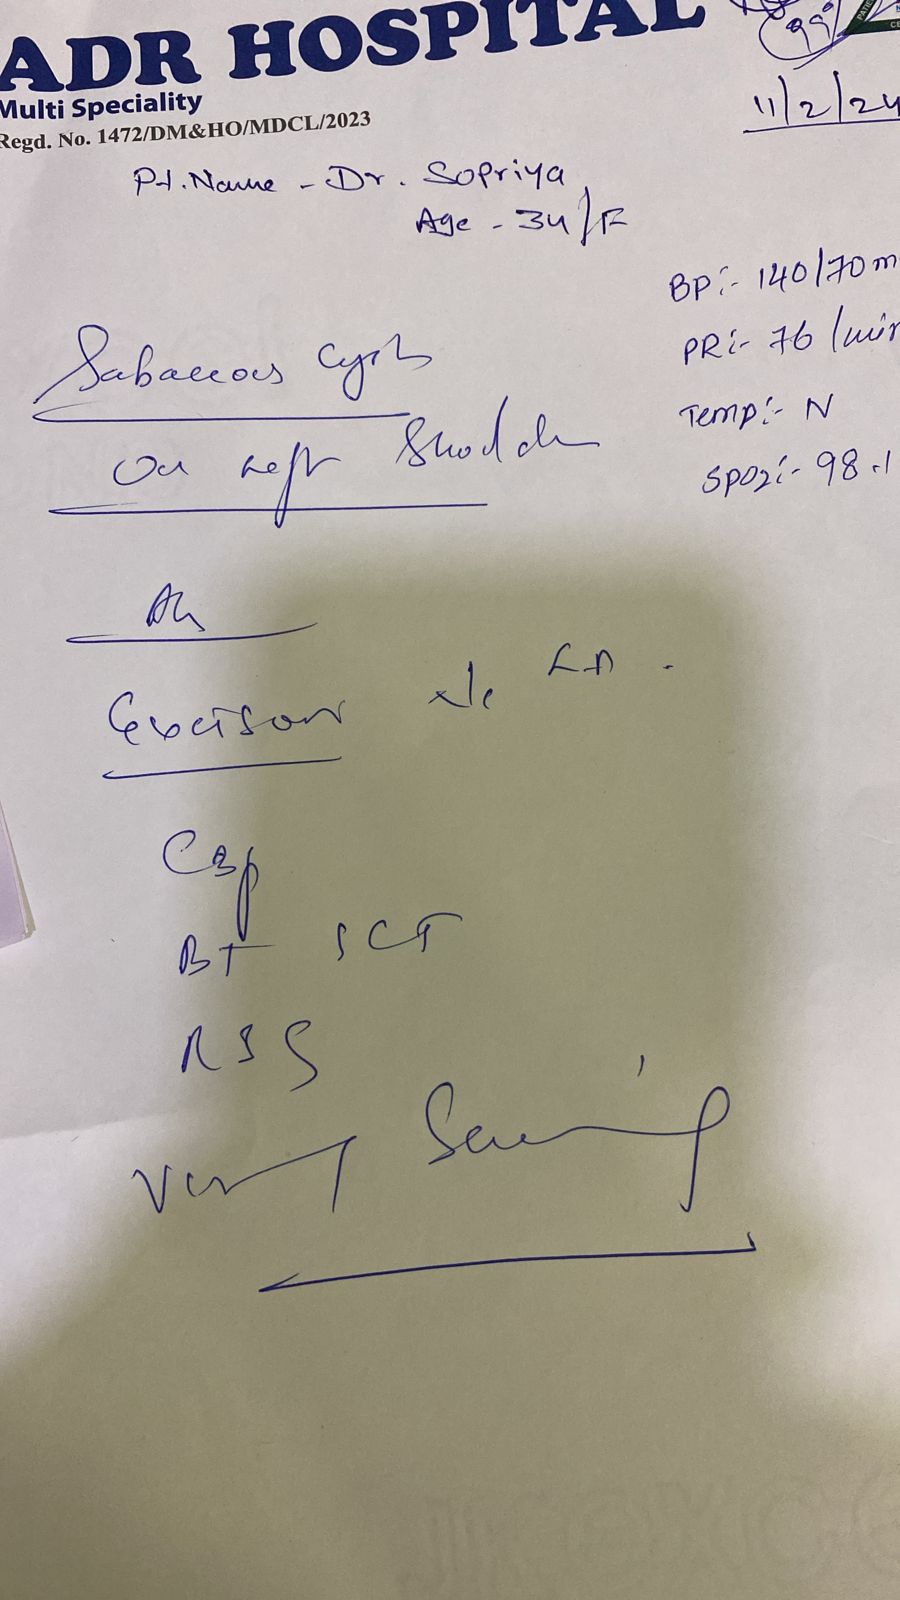 ADR HOSPITAL
Multi Speciality
Regd. No. 1472/DM&HO/MDCL/2023
11/2/24
Pt. Name - Dr. Sopriya
Age - 34/F
BP:- 140/70 m
PR:- 76 /min
Temp:- N
SPO2:- 98 .1
Sabaceous Cyst
On Left Sholder
Excison
LA.
CBP
BT | CT
RBS